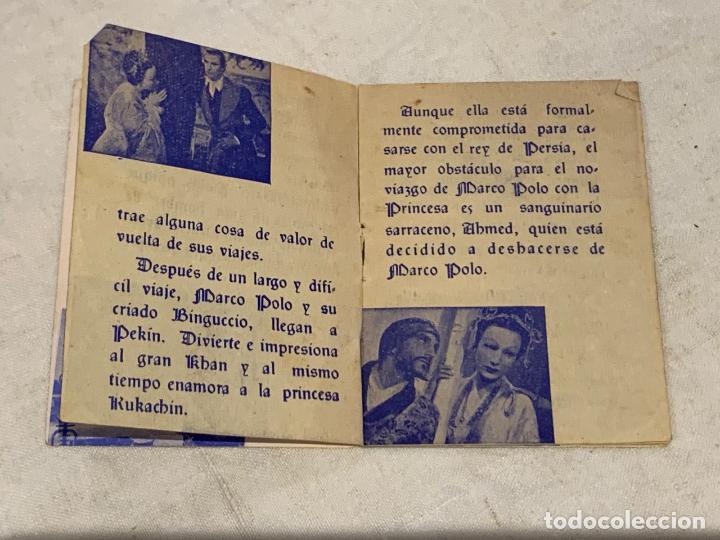 trae alguna cosa de valor de
vuelta de sus viajes.
Después de un largo y difí-
cil viaje, Marco Polo y su
criado Binguccio, llegan a
Pekín. Divierte e impresiona
al gran Khan y al mismo
tiempo enamora a la princesa
Kukachin.
Aunque ella está formal-
mente comprometida para ca-
sarse con el rey de Persia, el
mayor obstáculo para el no-
viazgo de Marco Polo con la
Princesa es un sanguinario
sarraceno, Ahmed, quien está
decidido a deshacerse de
Marco Polo.
todocoleccion.net